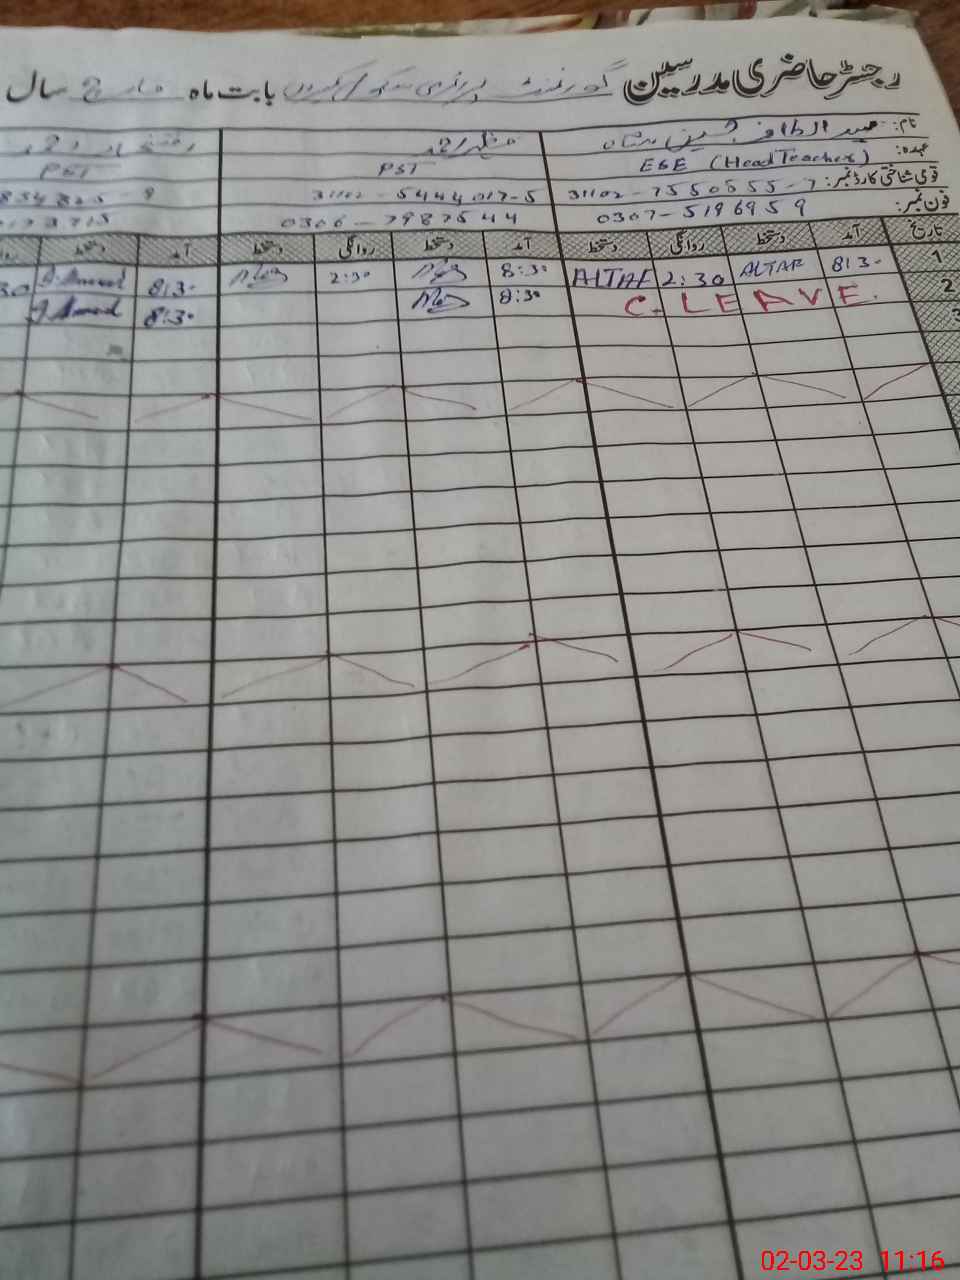 رجسٹر حاضری مدرسین گورنمنٹ پرائمری بابت ماہ مارچ سال
نام: سید الطاف حسین شاہ
عہدہ: ESE (Head Teacher) PST PST
قومی شناختی کارڈ نمبر: 31102-7550555-7 31102-5444017-5
فون نمبر: 0307-5196959 0306-7987544
تاریخ آمد دستخط روانگی دستخط آمد دستخط روانگی دستخط آمد دستخط
1 8:30 ALTAF 2:30 ALTAF 8:30 2:30 8:30
2 C. LEAVE. 8:30 8:30
3
02-03-23 11:16